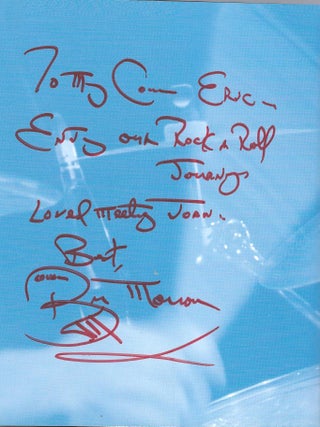 To My Cousin Eric –
Enjoy our Rock n Roll
Journey
Loved meeting Joan.
Best,